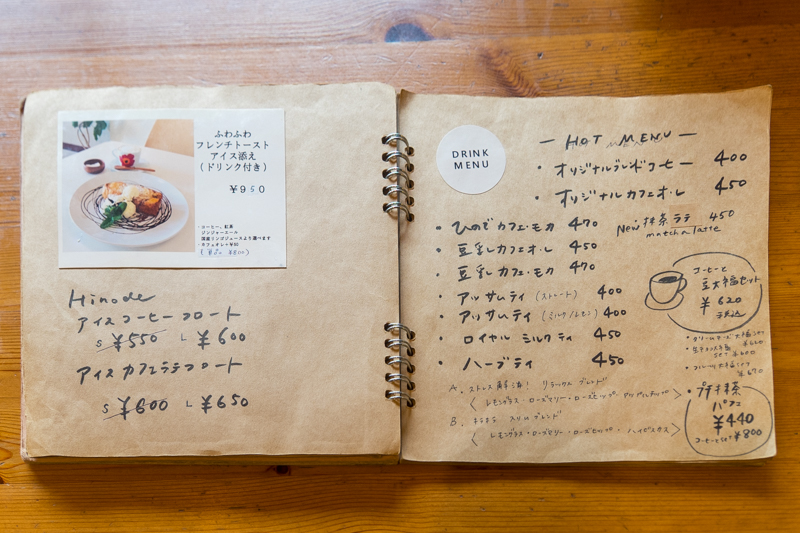 ふわふわ
フレンチトースト
アイス添え
(ドリンク付き)
¥950
・コーヒー、紅茶
ジンジャーエール
国産リンゴジュースより選べます
・カフェオレ+¥50
Hinode
アイスコーヒーフロート
S ¥550 L ¥600
アイスカフェラテフロート
S ¥600 L ¥650
DRINK
MENU
— HOT MENU —
・オリジナルブレンドコーヒー 400
・オリジナルカフェオ・レ 450
・ひのでカフェ・モカ 470
New 抹茶ラテ 450
matcha latte
・豆乳カフェオ・レ 450
・豆乳カフェ・モカ 470
・アッサムティ (ストレート) 400
・アッサムティ (ミルク/レモン) 400
・ロイヤルミルクティ 450
・ハーブティ 450
A. ストレス解消! リラックスブレンド
〈レモングラス・ローズマリー・ローズヒップ・アップルチップ〉
B. キラキラ スリムブレンド
〈レモングラス・ローズマリー・ローズヒップ・ハイビスカス〉
コーヒーと
豆大福セット
¥620
・クリームチーズ大福セット
set ¥600
・フルーツ大福セット
¥670
・プチ抹茶
パフェ
¥440
コーヒーとset ¥800